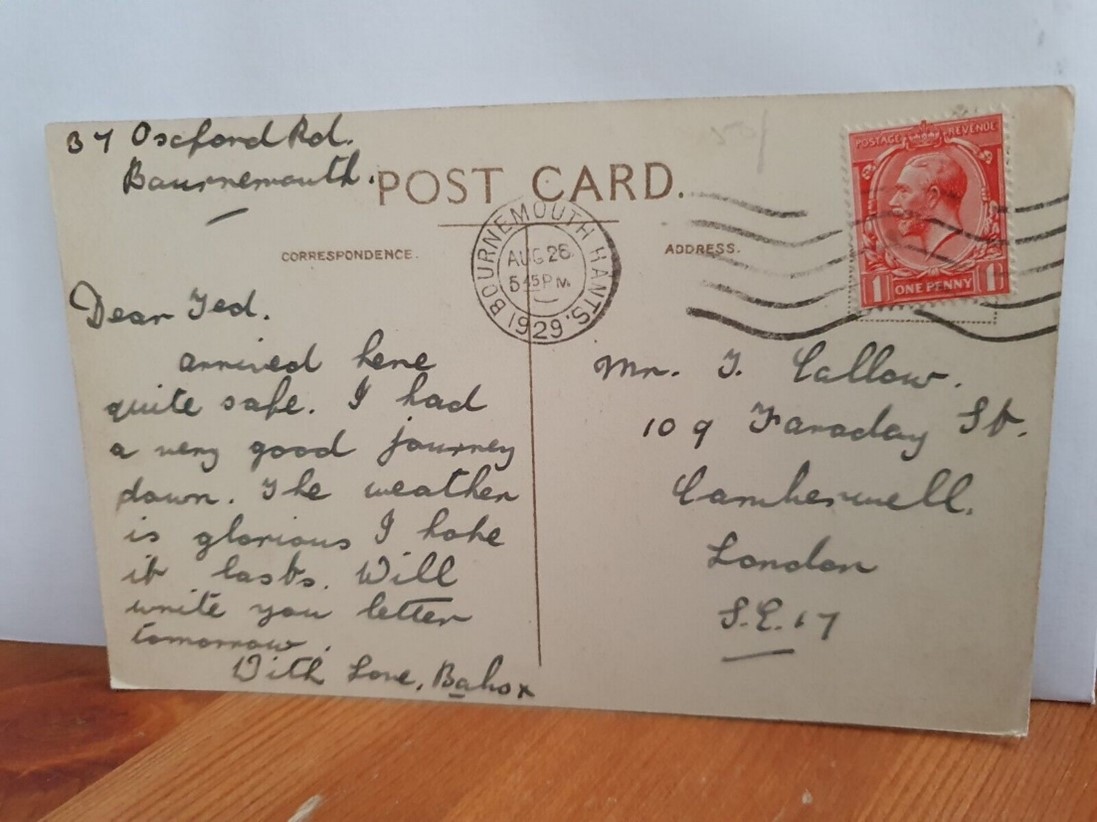 37 Oxford Rd.
Bournemouth.
POST CARD.
CORRESPONDENCE.
ADDRESS.
BOURNEMOUTH HANTS.
AUG 26
5 45 PM
1929
POSTAGE REVENUE
1 ONE PENNY 1
Dear Ted.
arrived here
quite safe. I had
a very good journey
down. The weather
is glorious I hope
it lasts. Will
write you letter
tomorrow.
With Love,
Mr. T. Callow.
109 Faraday St.
Camberwell.
London
S.E.17